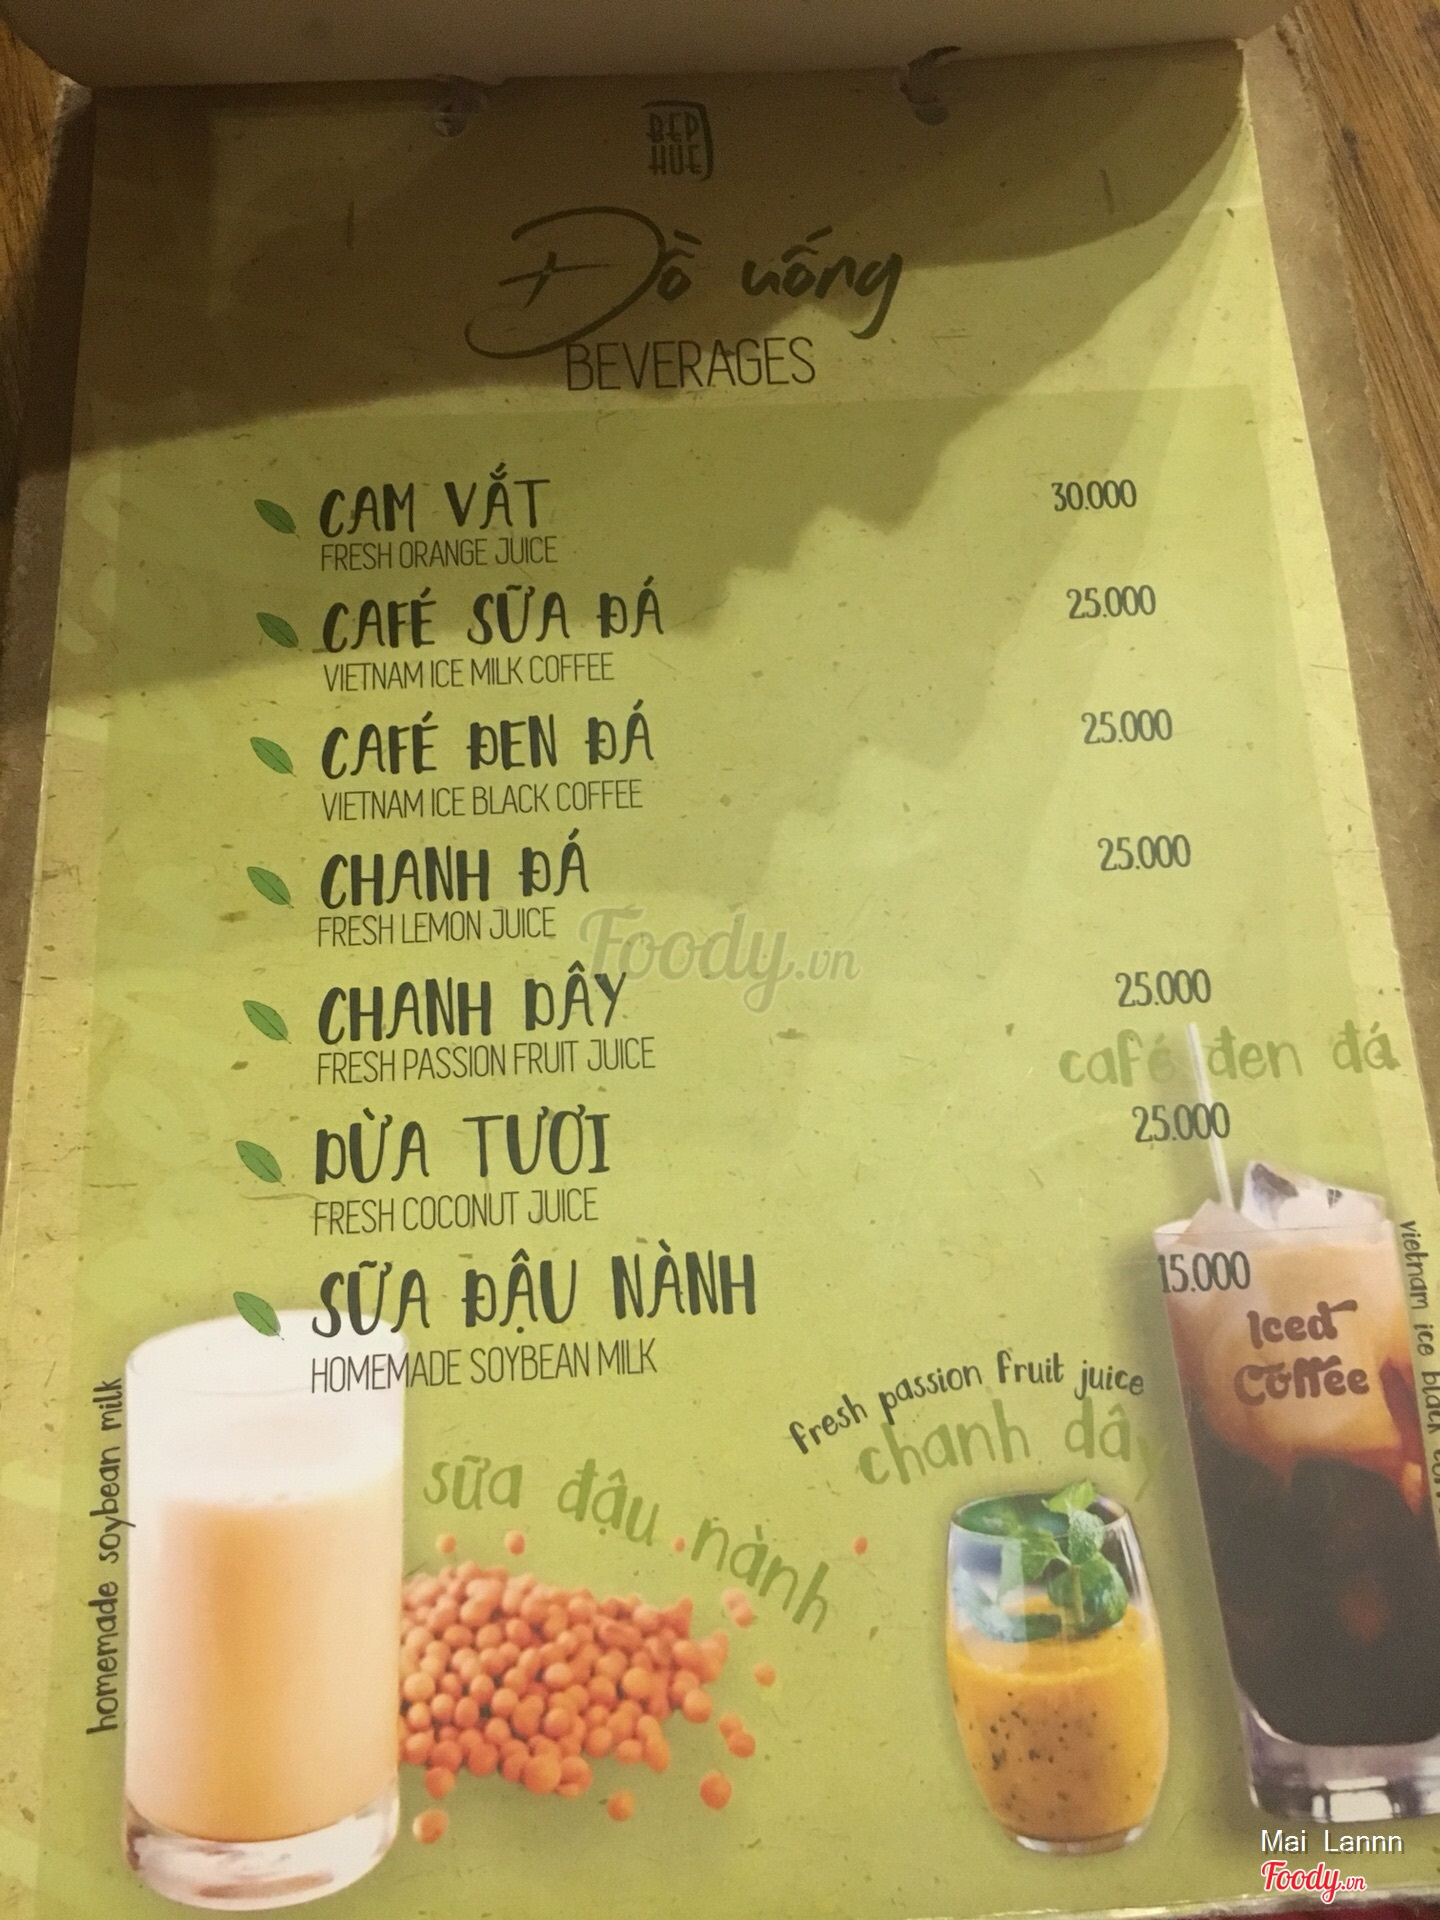 BẾP
HUẾ
Đồ uống
BEVERAGES
CAM VẮT 30.000
FRESH ORANGE JUICE
CAFÉ SỮA ĐÁ 25.000
VIETNAM ICE MILK COFFEE
CAFÉ ĐEN ĐÁ 25.000
VIETNAM ICE BLACK COFFEE
CHANH ĐÁ 25.000
FRESH LEMON JUICE
Foody.vn
CHANH DÂY 25.000
FRESH PASSION FRUIT JUICE
café đen đá
DỪA TƯƠI 25.000
FRESH COCONUT JUICE
SỮA ĐẬU NÀNH 15.000
HOMEMADE SOYBEAN MILK
Iced
Coffee
vietnam ice black
fresh passion fruit juice
chanh dây
homemade soybean milk
sữa đậu nành
Mai Lannn
Foody.vn